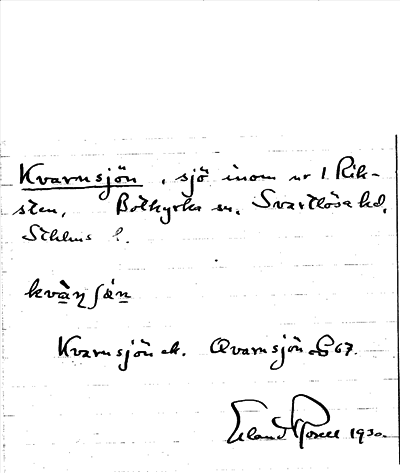 Kvarnsjön, sjö inom nr 1 Rik-
sten, Botkyrka sn, Svartlösa hd,
Sthlms l.
kvàṇ ʃȯ́n
Kvarnsjön ek. Qvarnsjön GS 67.
Erland Rosell 1930.